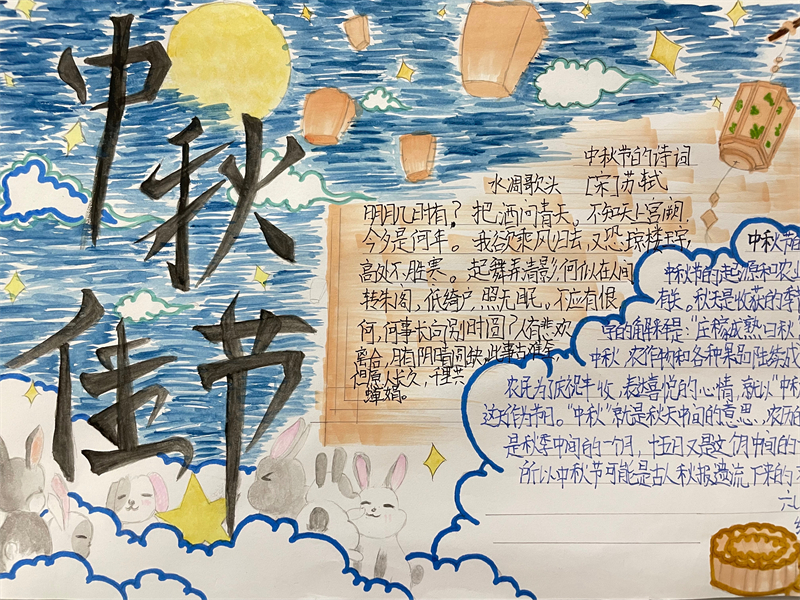 中秋佳节
中秋节的诗词
水凋歌头 [宋]苏轼
明月几时有？把酒问青天，不知天上宫阙，
今夕是何年。我欲乘风归去，又恐琼楼玉宇，
高处不胜寒。起舞弄清影，何似在人间
转朱阁，低绮户，照无眠，不应有恨
何，何事长向别时圆？人有悲欢
离合，月有阴晴圆缺，此事古难全，
但愿人长久，千里共
婵娟。
中秋节
中秋节的起源和农业
有关。秋天是收获的季
字的解释是：“庄稼成熟曰秋
中秋，农作物和各种果品陆续成
农民为了庆祝丰收，表达喜悦的心情，就以“中秋
这天作为节日。“中秋”就是秋天中间的意思，农历的
是秋季中间的一个月，十五日又是这个月中间的一
所以中秋节可能是古人秋报遗流下来的
六